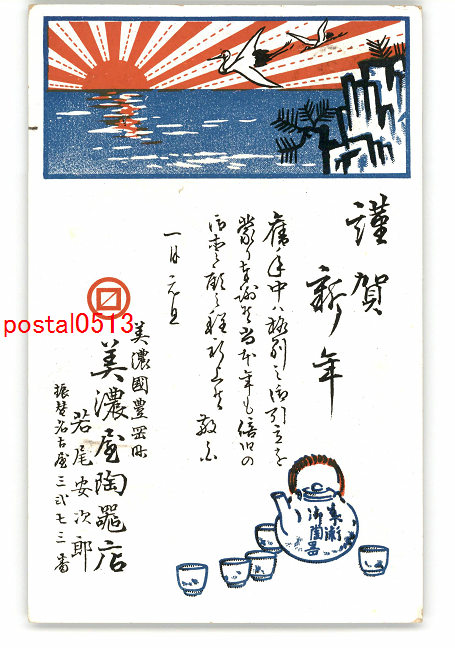 謹賀
新年
舊年中ハ格別之御引立を
蒙り奉謝候尚本年も倍旧の
御愛顧之程祈上候 敬白
一月元旦
美濃國豊岡町
美濃屋陶器店
若尾安次郎
振替名古屋三弐七三番
美濃
御陶器
postal0513